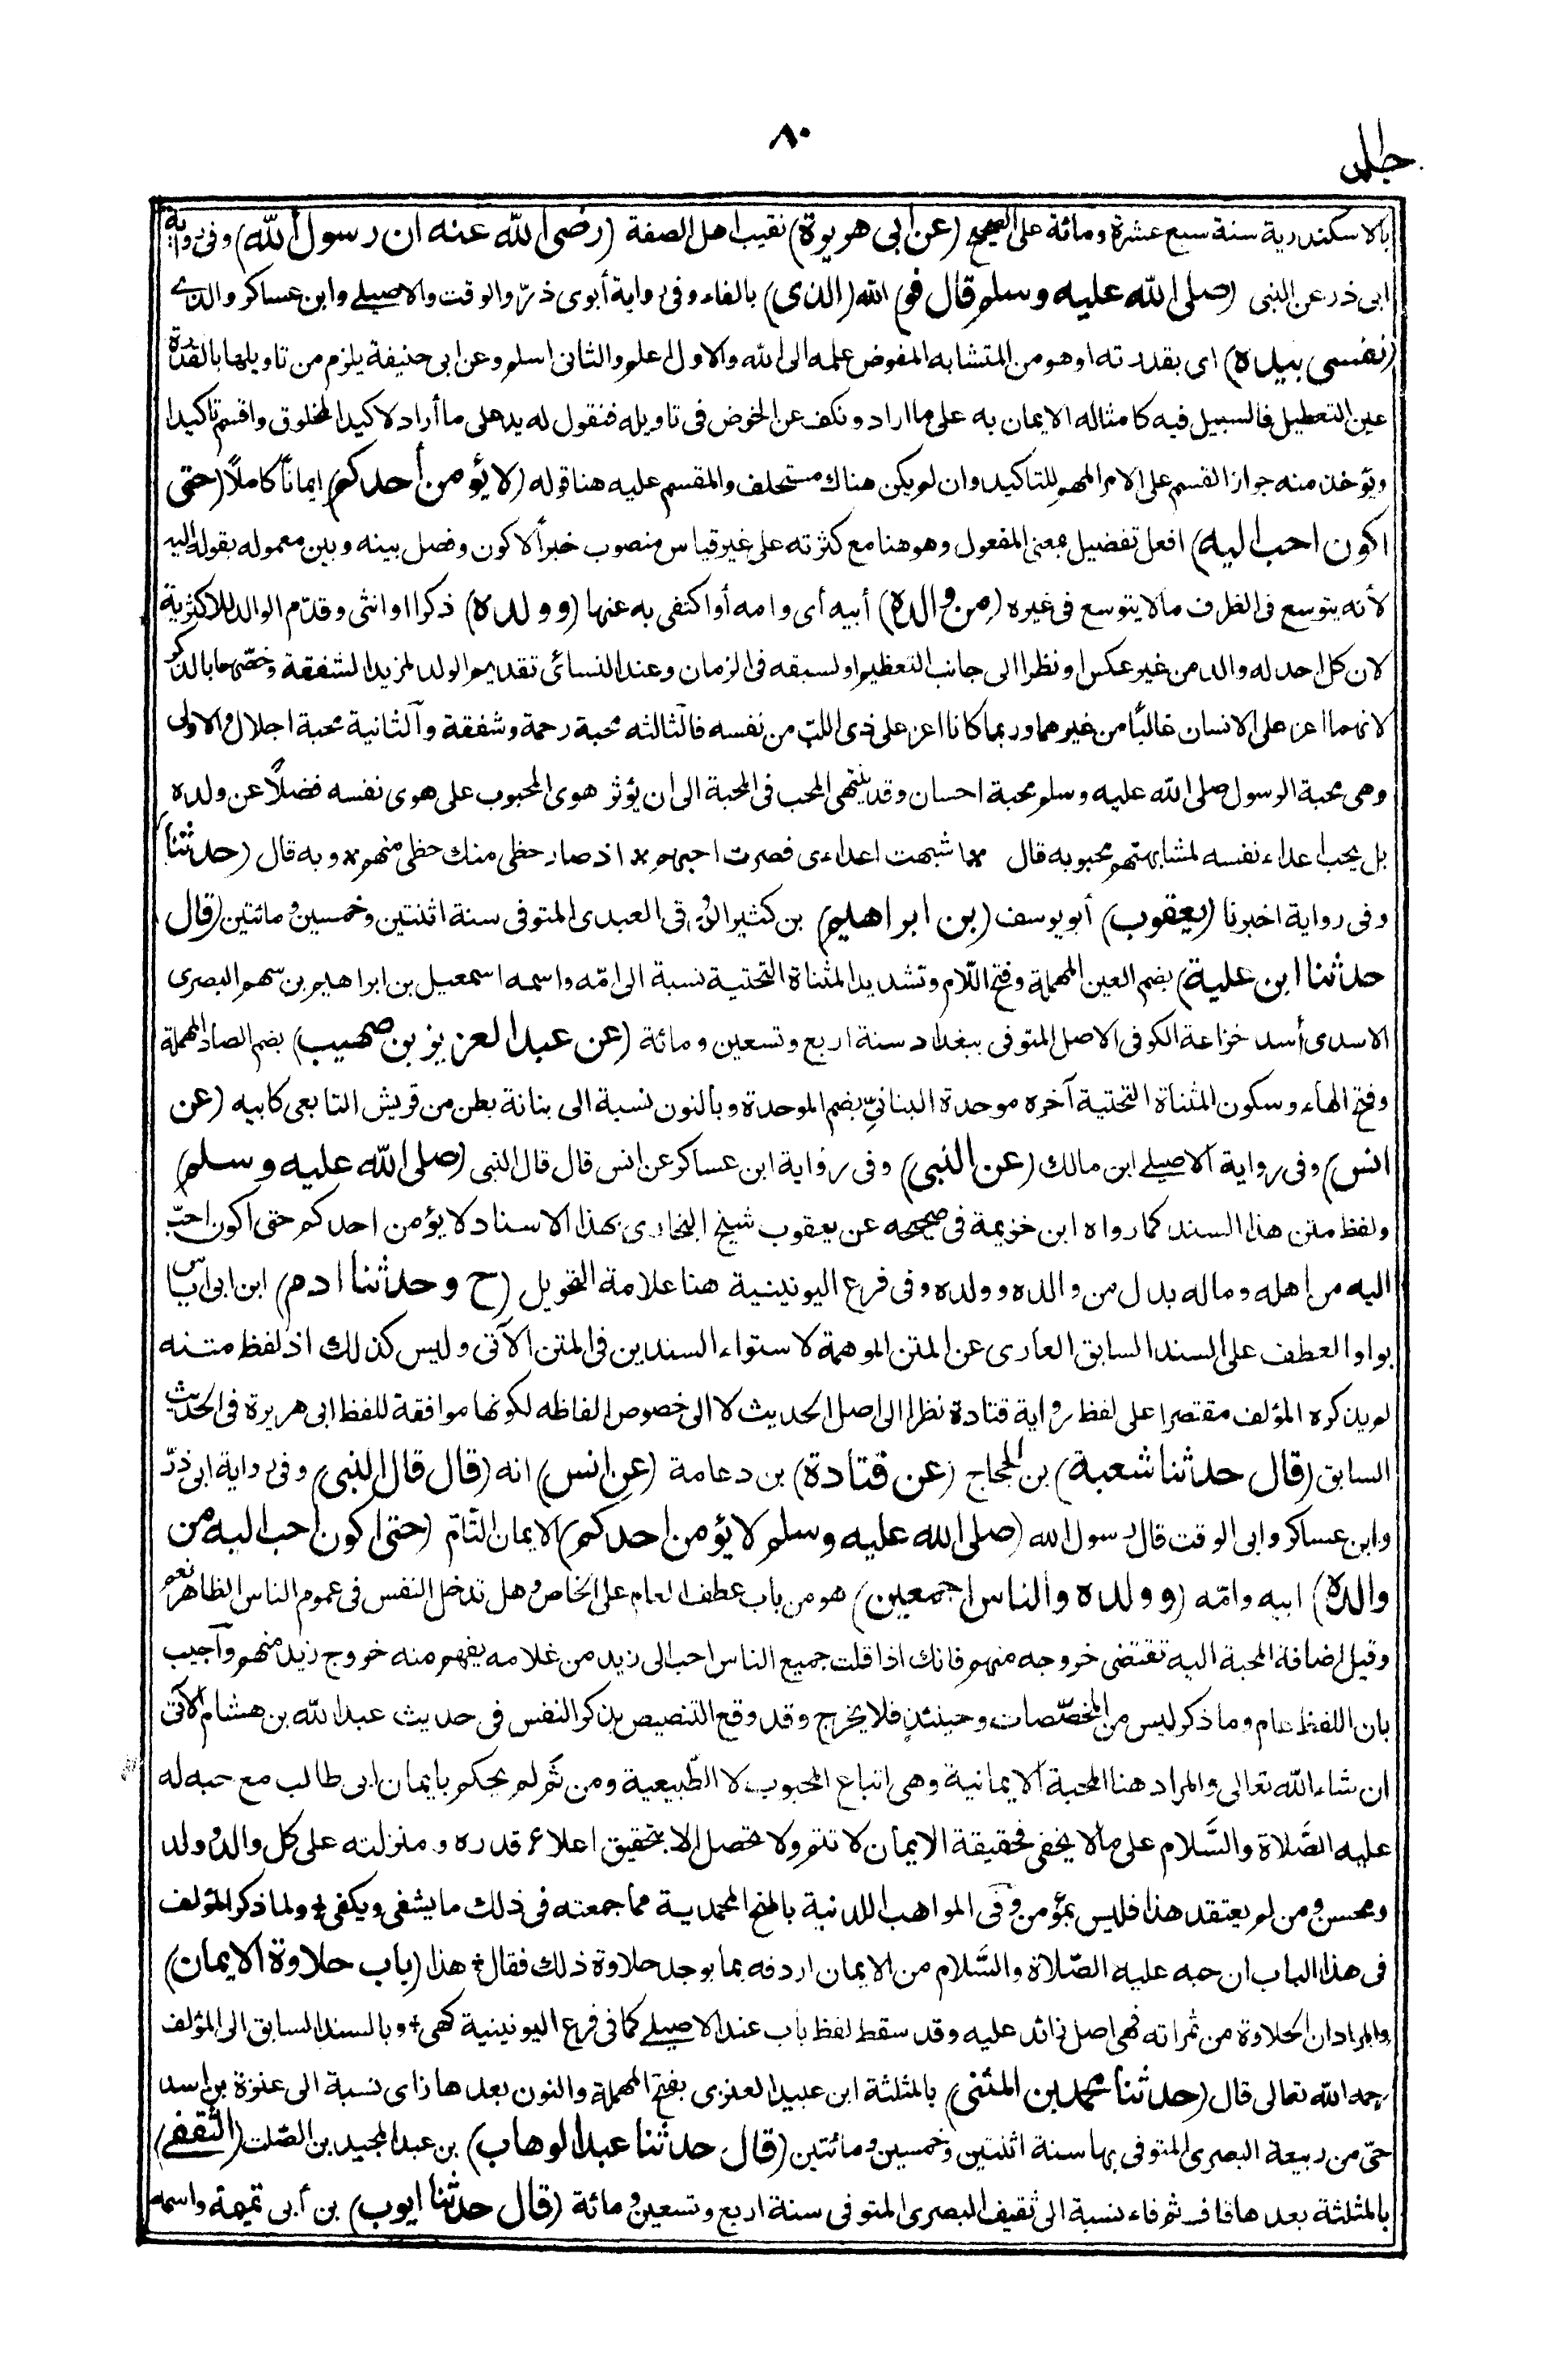 ٨٠
جلد
بالاسكندرية سنة سبع عشرة ومائة على الصحيح (عن ابى هريرة) نقيب اهل الصفة (رضى الله عنه ان رسول الله) وفى رواية
ابى ذر عن النبى (صلى الله عليه وسلم قال فو) الله (الذى) بالفاء وفى رواية أبوى ذرّ والوقت والاصيلے وابن عساكر والذے
(نفسى بيده) اى بقدرته او هو من المتشابه المفوض علمه الى الله والاول اعلم والثانى اسلم وعن ابى حنيفة يلزم من تاويلها بالقدرة
عين التعطيل فالسبيل فيه كامثاله الايمان به على ما اراد ونكف عن الخوض فى تاويله فنقول له يد على ما أراد لا كيد المخلوق واقسم تاكيدا
ويؤخذ منه جواز القسم على الامر المهم للتاكيد وان لم يكن هناك مستحلف والمقسم عليه هنا قوله (لا يؤمن أحدكم) ايماناً كاملاً (حتى
اكون احب اليه) افعل تفضيل بمعنى المفعول وهو هنا مع كثرته على غير قياس منصوب خبراً لاكون وفصل بينه وبين معموله بقوله اليه
لأنه يتوسع فى الظرف ما لا يتوسع فى غيره (من والده) أبيه أى وامه أو اكتفى به عنها (وولده) ذكرا او انثى وقدّم الوالد للاكثرية
لان كل احد له والد من غير عكس او نظرا الى جانب التعظيم او لسبقه فى الزمان وعند النسائى تقديم الولد لمزيد الشفقة وخصّهما بالذكر
لانهما اعز على الانسان غالبًا من غيرهما وربما كانا اعز على ذى اللبّ من نفسه فالثالثه محبة رحمة وشفقة والثانية محبة اجلال والاولى
وهى محبة الرسول صلى الله عليه وسلم محبة احسان وقد ينتهى المحب فى المحبة الى ان يؤثر هوى المحبوب على هوى نفسه فضلاً عن ولده
بل يحب اعداء نفسه لمشابهتهم محبوبه قال * اشبهت اعداءى فصرت احبهم * اذ صار حظى منك حظى منهم * وبه قال (حدثنا)
وفى رواية اخبرنا (يعقوب) أبو يوسف (بن ابراهيم) بن كثير الدورقى العبدى المتوفى سنة اثنتين وخمسين ومائتين (قال
حدثنا ابن علية) بضم العين المهملة وفتح اللّام وتشديد المثناة التحتية نسبة الى امّه واسمه اسمعيل بن ابراهيم بن سهم البصرى
الاسدى أسد خزاعة الكوفى الاصل المتوفى ببغداد سنة اربع وتسعين ومائة (عن عبد العزيز بن صهيب) بضم الصاد المهملة
وفتح الهاء وسكون المثناة التحتية آخره موحدة البنانىّ بضم الموحدة وبالنون نسبة الى بنانة بطن من قريش التابعى كابيه (عن
انس) وفى رواية الاصيلے ابن مالك (عن النبى) وفى رواية ابن عساكر عن انس قال قال النبى (صلى الله عليه وسلم)
ولفظ متن هذا السند كما رواه ابن خزيمة فى صحيحه عن يعقوب شيخ البخارى بهذا الاسناد لا يؤمن احدكم حتى اكون احبّ
اليه من اهله وماله بدل من والده وولده وفى فرع اليونينية هنا علامة التحويل (ح وحدثنا ادم) ابن ابى اياس
بواو العطف على السند السابق العارى عن المتن الموهمة لاستواء السندين فى المتن الآتى وليس كذلك اذ لفظ متنه
لم يذكره المؤلف مقتصرا على لفظ رواية قتادة نظرا الى اصل الحديث لا الى خصوص الفاظه لكونها موافقة للفظ ابى هريرة فى الحديث
السابق (قال حدثنا شعبة) بن الحجاج (عن قتادة) بن دعامة (عن انس) انه (قال قال النبى) وفى رواية ابى ذرّ
وابن عساكر وابى الوقت قال رسول الله (صلى الله عليه وسلم لا يؤمن احدكم) الايمان التّامّ (حتى اكون احب اليه من
والده) ابيه وامّه (وولده والناس اجمعين) هو من باب عطف العام على الخاص وهل تدخل النفس فى عموم الناس الظاهر نعم
وقيل اضافة المحبة اليه تقتضى خروجه منهم فانك اذا قلت جميع الناس احب الى زيد من غلامه يفهم منه خروج زيد منهم وأجيب
بان اللفظ عام وما ذكر ليس من المخصّصات وحينئذٍ فلا يخرج وقد وقع التنصيص بذكر النفس فى حديث عبد الله بن هشام الآتى
ان شاء الله تعالى والمراد هنا المحبة الايمانية وهى اتباع المحبوب لا الطّبيعية ومن ثَمَّ لم يحكم بايمان ابى طالب مع حبه له
عليه الصَّلاة والسَّلام على ما لا يخفى فحقيقة الايمان لا تتم ولا تحصل الا بتحقيق اعلاء قدره ومنزلته على كل والد وولد
ومحسن ومن لم يعتقد هذا فليس بمؤمن وفى المواهب اللدنية بالمنح المحمدية مما جمعته فى ذلك ما يشفى ويكفى ولما ذكر المؤلف
فى هذا الباب ان حبه عليه الصّلاة والسَّلام من الايمان اردفه بما يوجد حلاوة ذلك فقال هذا (باب حلاوة الايمان)
والمراد ان الحلاوة من ثمراته فهى اصل زائد عليه وقد سقط لفظ باب عند الاصيلے كما فى فرع اليونينية كهى وبالسند السابق الى المؤلف
رحمه الله تعالى قال (حدثنا محمد بن المثنى) بالمثلثة ابن عبيد العنزى بفتح المهملة والنون بعدها زاى نسبة الى عنزة بن اسد
حىّ من ربيعة البصرى المتوفى بها سنة اثنتين وخمسين ومائتين (قال حدثنا عبد الوهاب) بن عبد المجيد بن الصّلت (الثقفے)
بالمثلثة بعدها قاف ثم فاء نسبة الى ثقيف البصرى المتوفى سنة اربع وتسعين ومائة (قال حدثنا ايوب) بن أبى تميمة واسمه